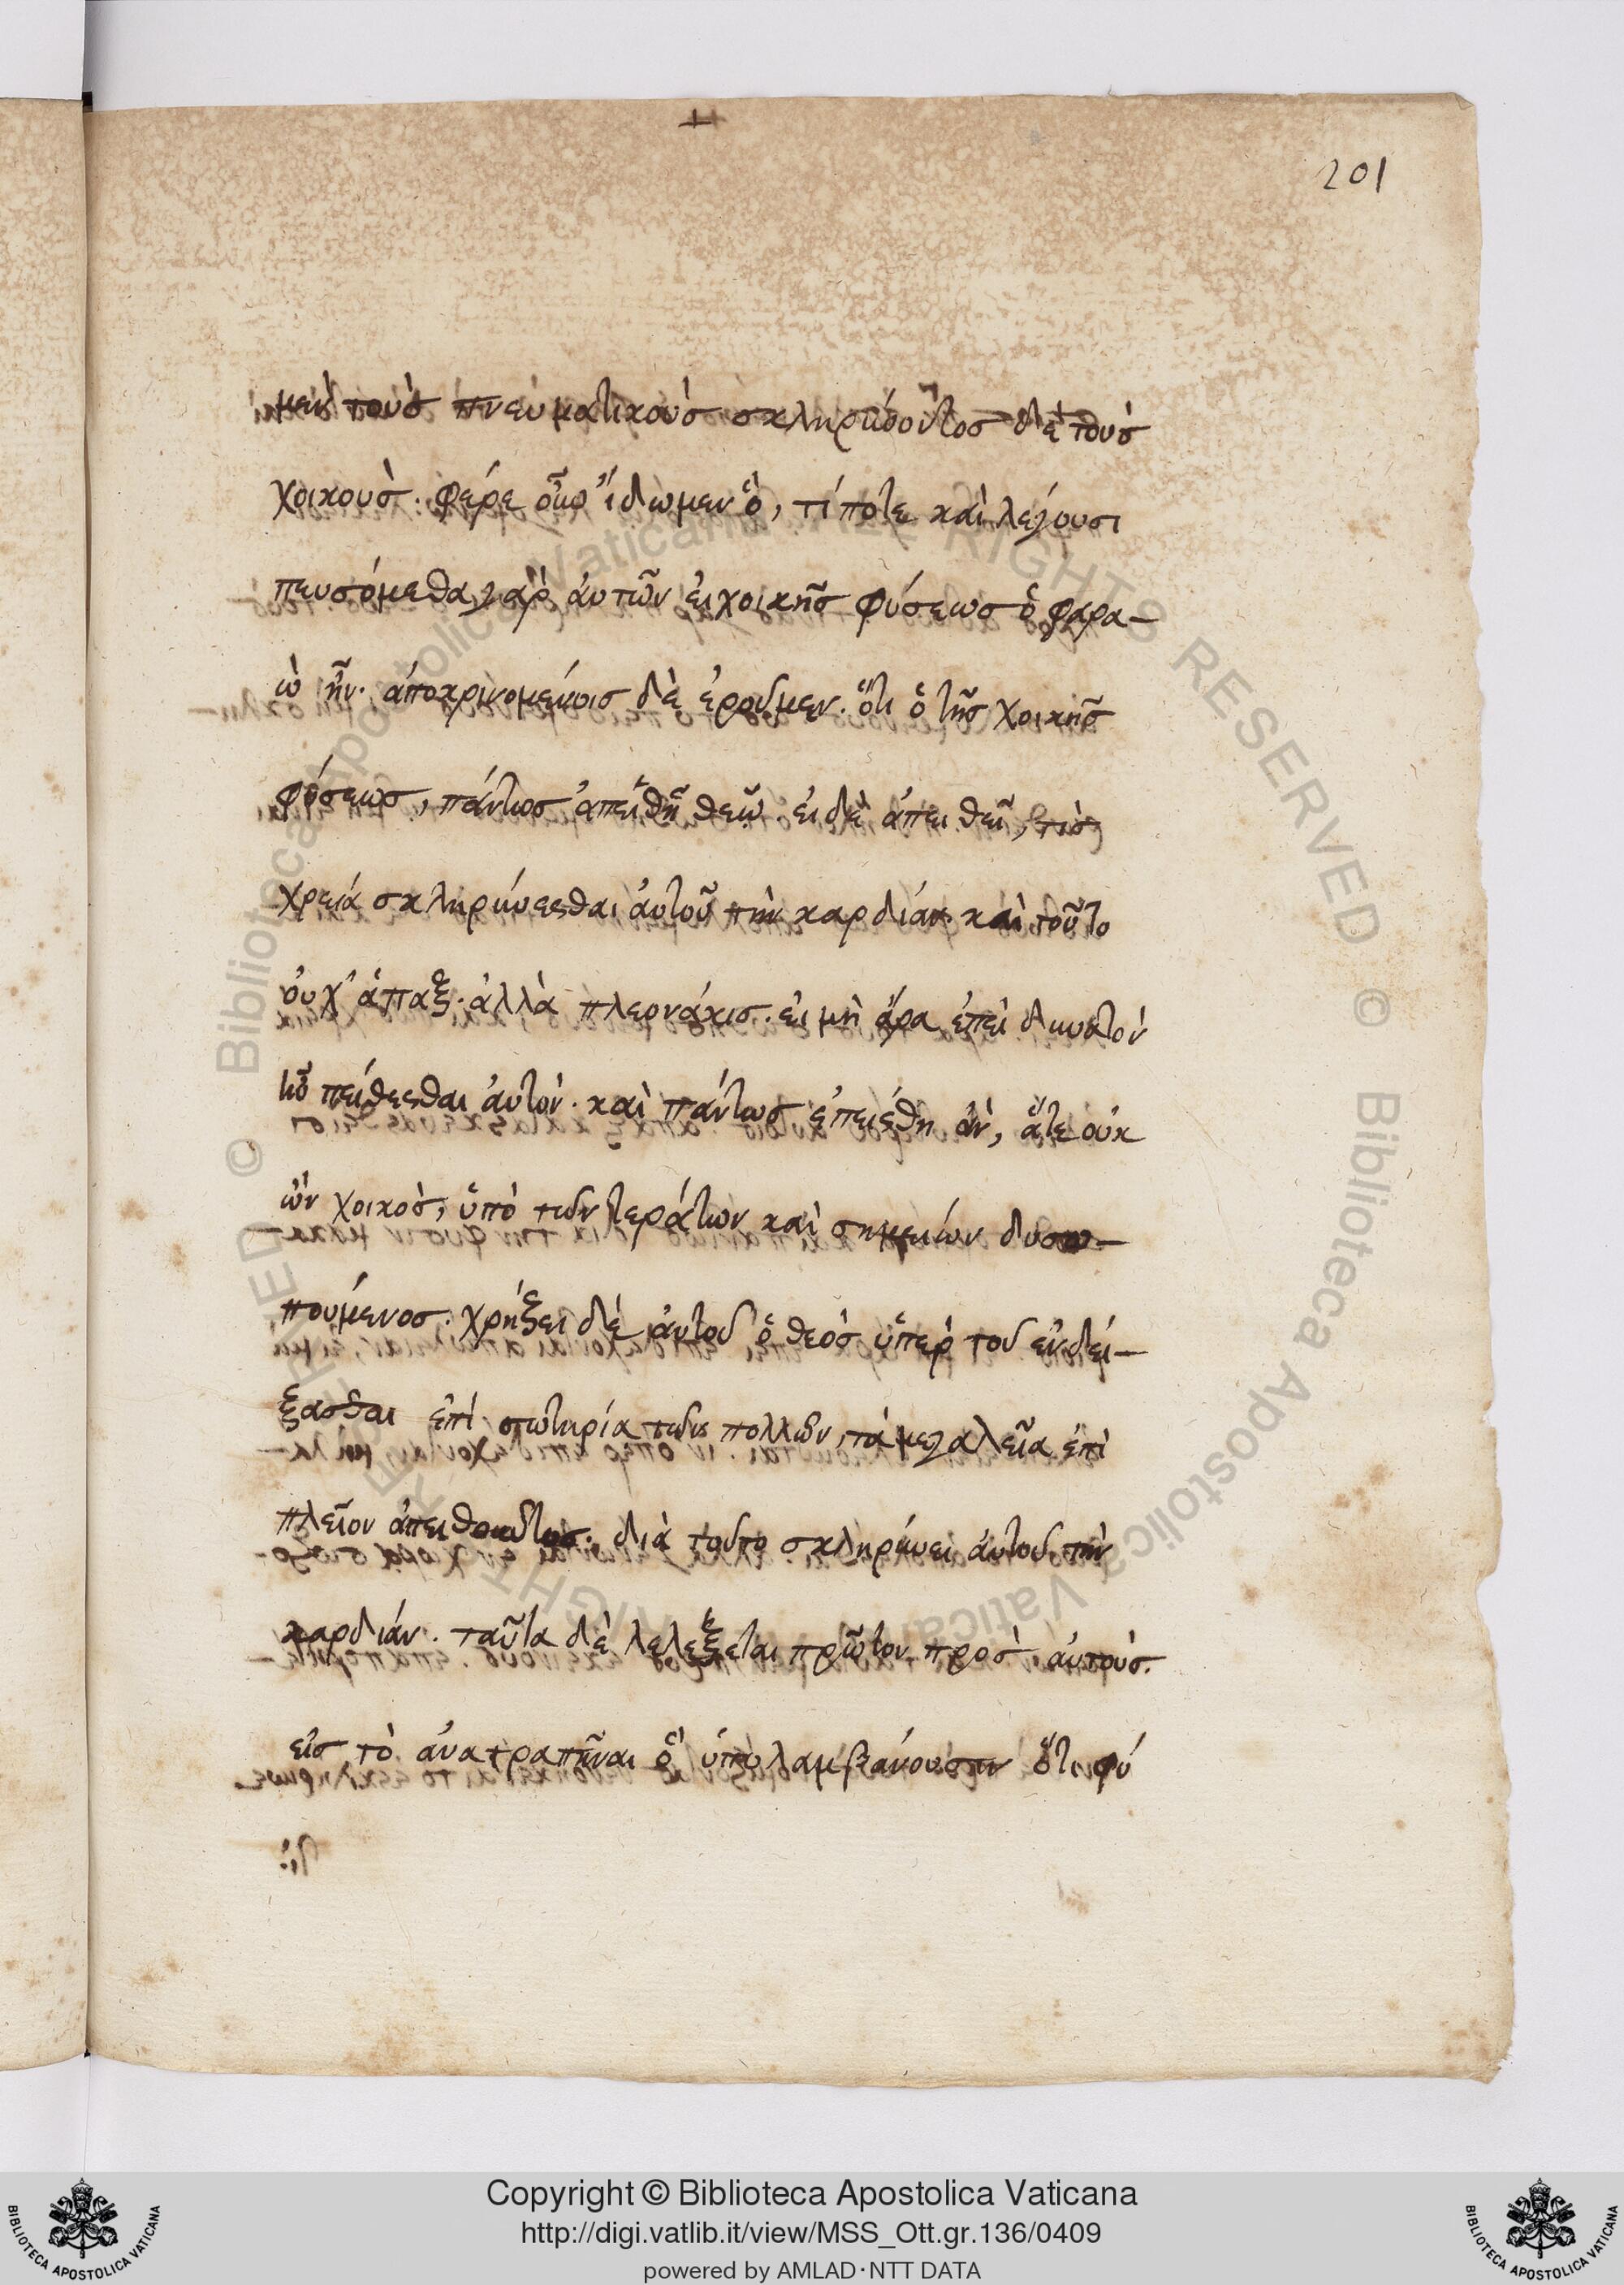 201
μεν τοὺσ πνευματικοὺσ σκληρύνοντοσ δὲ τοὺσ
χοικουσ· φέρε οὖν ἴδωμεν ὃ, τί ποτε καὶ λέγουσι
πευσόμεθα γὰρ ἀυτῶν ἐι χοικῆσ φύσεωσ ὁ φαρα-
ὼ ἦν· ἀποκρινομένοισ δὲ ἐροῦμεν· ὅτι ὁ τῆσ χοικῆσ
φύσεωσ, πάντωσ ἀπειθῆ θεῶ· ἐι δὲ ἀπειθεῖ, τὶσ
χρειά σκληρύνεσθαι ἀυτοῦ τὴν καρδίαν· καὶ τοῦτο
ὀυχ' ἅπαξ· ἀλλὰ πλεονάκισ· ἐι μὴ ἄρα ἐπεὶ δυνατὸν
ἦν πείθεσθαι ἀυτὸν· καὶ πάντωσ ἐπείσθη ἀν, ἅτε οὐκ
ὢν χοικὸσ, ὑπὸ τῶν τεράτων καὶ σημείων δυσω-
πούμενοσ· χρήζει δὲ ἀυτοῦ ὁ θεὸσ ὑπὲρ τοῦ ἐνδεί-
ξασθαι ἐπὶ σωτηρία τῶν πολλῶν, τὰ μεγαλεῖα ἐπὶ
πλεῖον ἀπειθοῦντοσ· διὰ τοῦτο σκληρύνει ἀυτοῦ τὴν
καρδιάν· ταῦτα δὲ λελέξεται πρῶτον πρὸσ ἀυτοὺσ.
εἰσ τὸ ἀνατραπῆναι ὃ ὑπολαμβάνουσιν ὅτι φύ
Copyright © Biblioteca Apostolica Vaticana
http://digi.vatlib.it/view/MSS_Ott.gr.136/0409
powered by AMLAD·NTT DATA
BIBLIOTECA APOSTOLICA VATICANA
BIBLIOTECA APOSTOLICA VATICANA